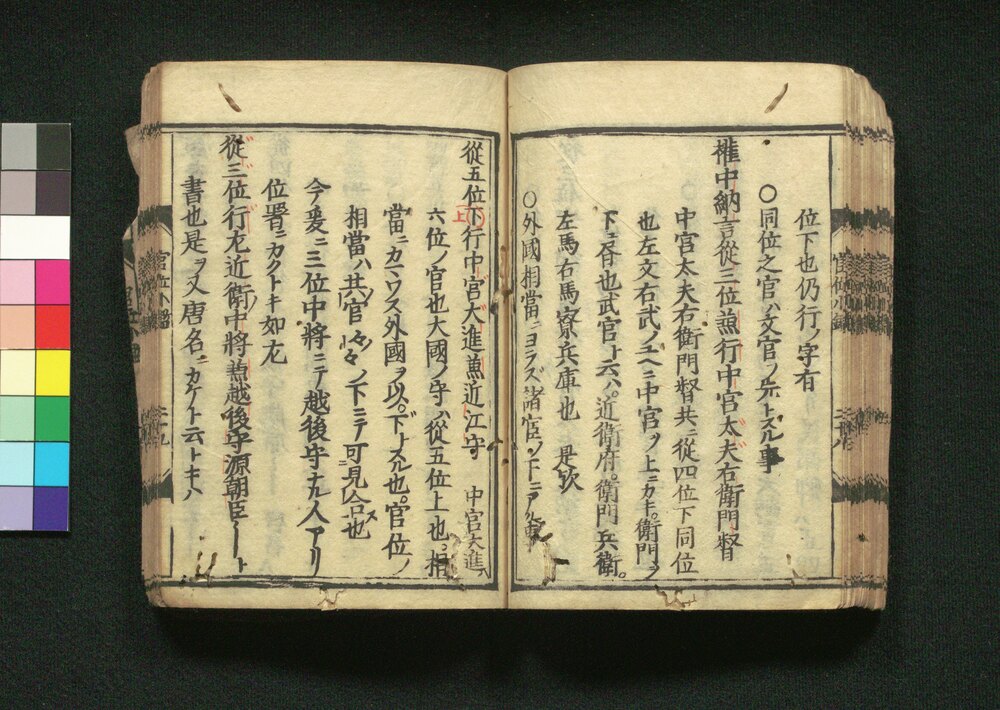 位下也仍行ノ字有
〇同位之官ハ文官ヲ先トスル事
権中納言從三位兼行中宮大夫右衛門督
中宮太夫右衛門督共ニ從四位下同位
也左文右武ノユヘニ中宮ヲ上ニカキ。衛門ヲ
下ニ居也武官ト云ハ。近衛府。衛門兵衛。
左馬右馬寮兵庫也 是欤
〇外國相當ニヨラズ諸官ノ下ニアル事
從五位下行中宮大進兼近江守 中宮大進ハ
上
六位ノ官也大國ノ守ハ從五位上也。相
當ニカマワス外國ヲ以。下トスル也。官位ノ
相當ハ其官々々ノ下ニテ可見合也
今爰ニ三位中將ニテ越後守ナル人アリ
位署ニカクトキ如左
從三位行左近衛中將兼越後守源朝臣――ト
書也是ヲ又唐名ニカケト云トキハ